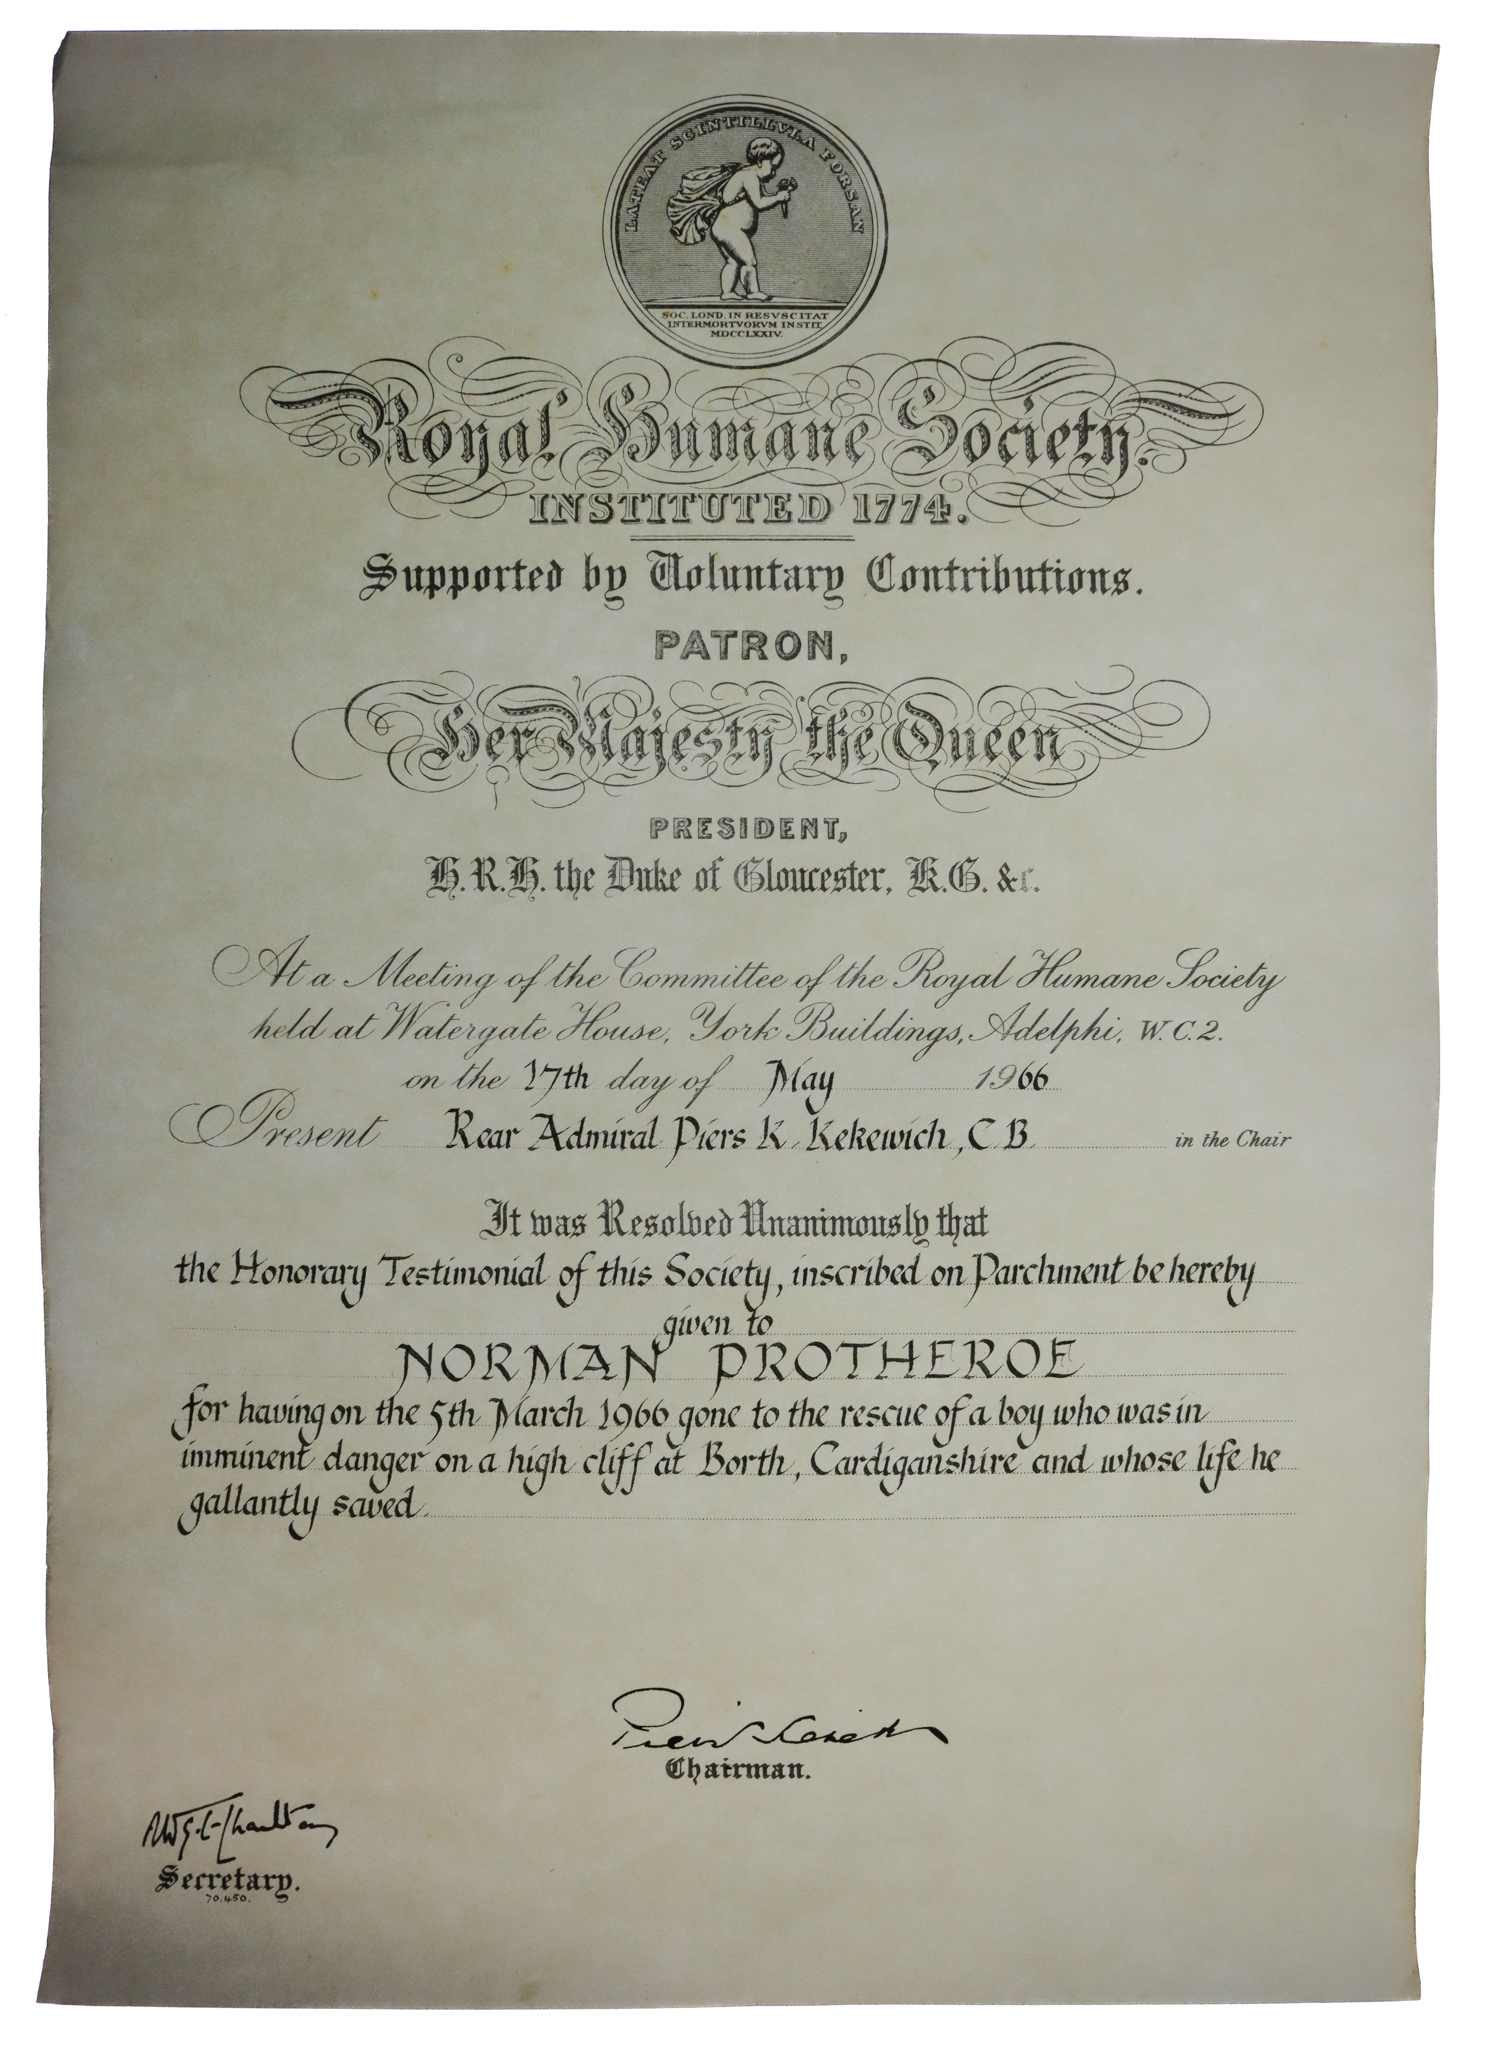 LATEAT SCINTILLVLA FORSAN
SOC. LOND. IN RESVSCITAT
INTERMORTVORVM INSTIT.
MDCCLXXIV.
Royal Humane Society.
INSTITUTED 1774.
Supported by Voluntary Contributions.
PATRON,
Her Majesty the Queen
PRESIDENT,
H.R.H. the Duke of Gloucester, K.G. &c.
At a Meeting of the Committee of the Royal Humane Society
held at Watergate House, York Buildings, Adelphi, W.C.2.
on the 17th day of May 1966
Present Rear Admiral Piers K. Kekewich, C.B. in the Chair
It was Resolved Unanimously that
the Honorary Testimonial of this Society, inscribed on Parchment be hereby
given to
NORMAN PROTHEROE
for having on the 5th March 1966 gone to the rescue of a boy who was in
imminent danger on a high cliff at Borth, Cardiganshire and whose life he
gallantly saved.
Chairman.
Secretary.
70.450.